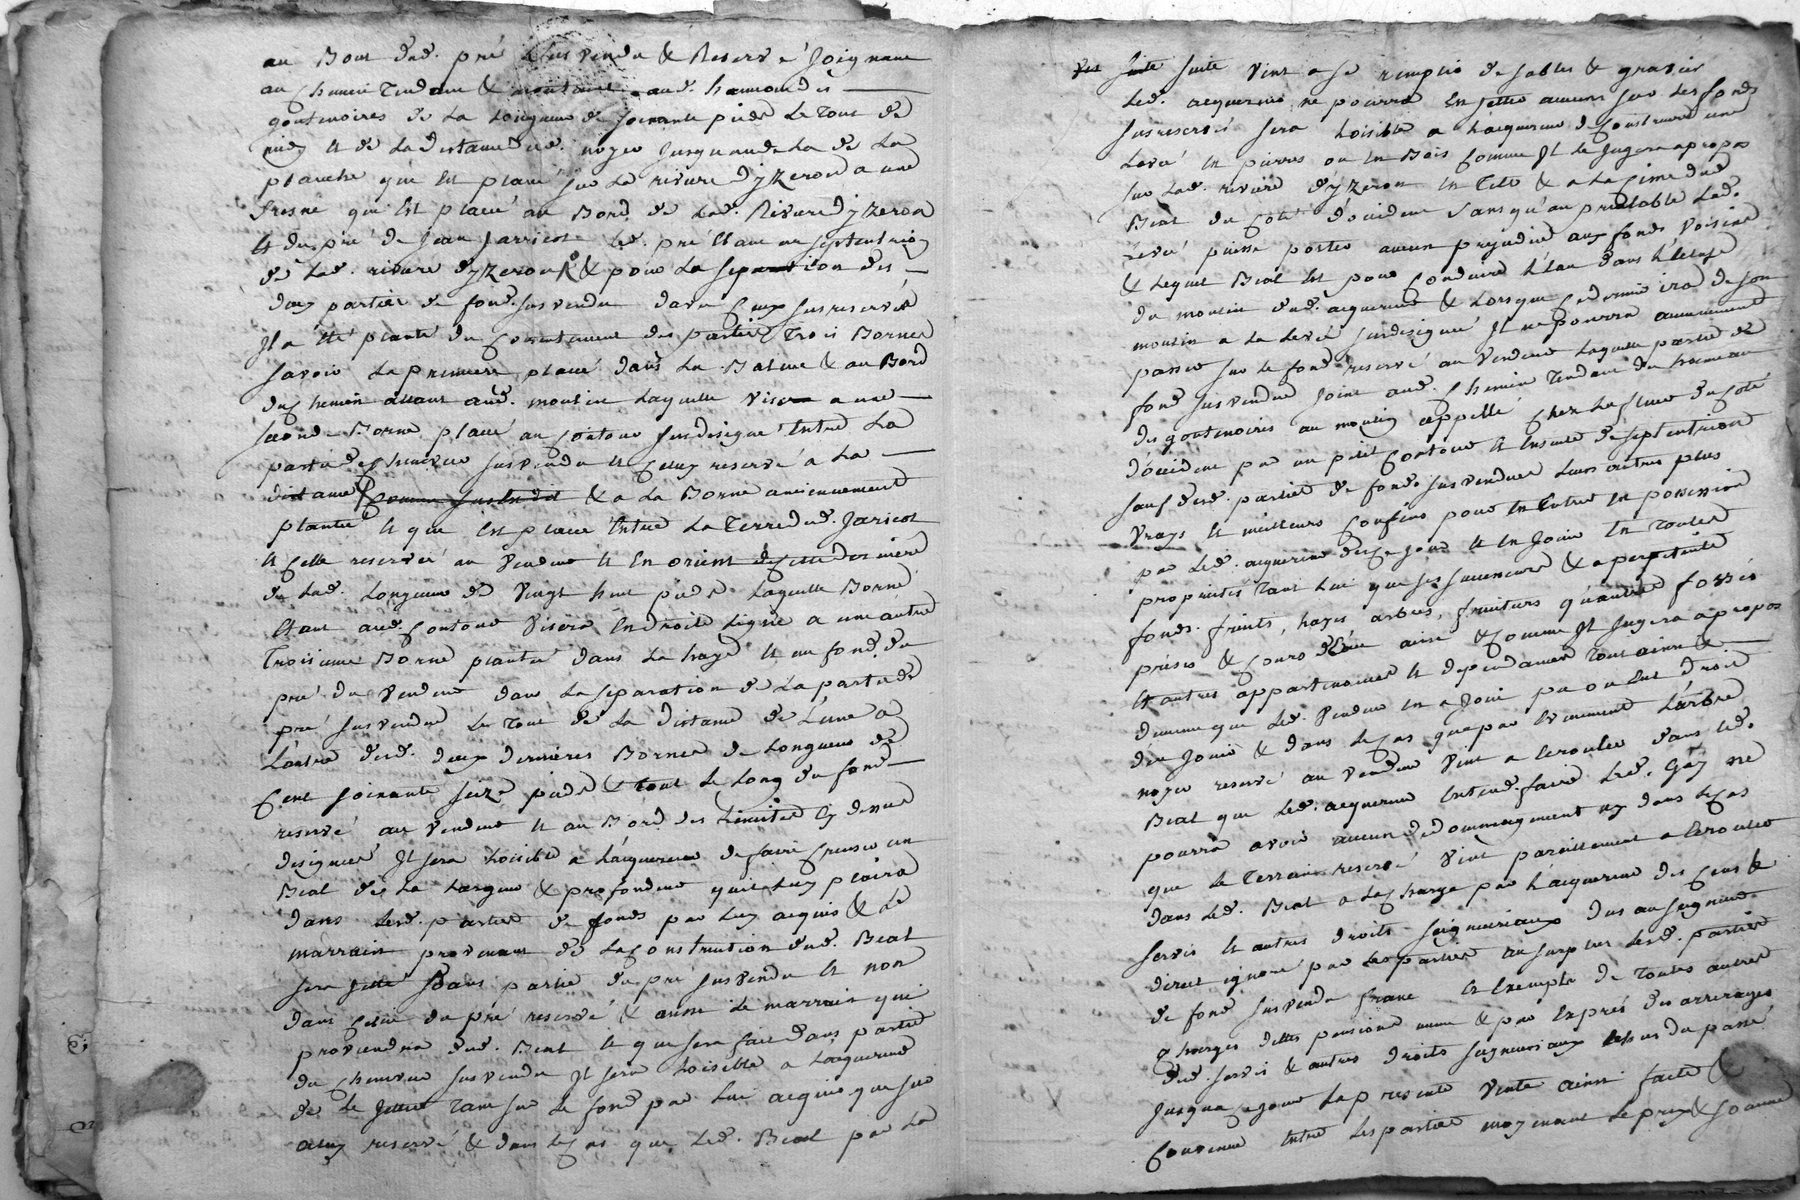 au Bout dud. pré susvendu & Reservé Joignant
au chemin Tendant & au d. hameau des
goutenoires de la Longueur de soixante pieds Le Tout de
midy et de La distance dud. noyer Jusquau dela de La
planche qui Est placé sur La riviere d'yzeron a une
fresne qui Est placé au Bord de Lad. Riviere d'yzeron
et du pré de Jean Jarricot Led. pré Etant au septentrion
de Lad. riviere dyzeron & pour La separation des
deux parties de fond susvendu davec Ceux susreservés
Il a été planté du Consentement des parties Trois Bornes
savoir La premiere placé dans La Balme & au Bord
du chemin allant aud. moulin Laquelle vise a une
seconde Borne placé au Contour susdesigné Entre La
partie de cheneviere susvendu et Celuy reservé a La
distance Comme susdit & a La Borne anciennement
plantée et qui Est placée Entre La Terre dud. Jaricot
et Celle reservée au vendeur et En orient de Cette derniere
de Lad. Longueur de vingt huit pieds Laquelle Borne
Etant aud. Contour visera En droite Ligne a une autre
Troisieme Borne plantée dans La haye et au fond du
pré du vendeur dans La separation de La partie de
pré susvendue Le Tout de La distance de L'une a
L'autre desd. deux dernieres Bornes de Longueur de
Cent soixante seize pieds & tout Le Long du fond
reservé au vendeur et au Bord des Limites Cy dessus
designées Il sera Loisible a L'acquereur de faire Creuser un
Beal de La Largeur & profondeur quil Luy plaira
dans Lesd. parties de fonds par Luy acquis & Le
marrain provenant de La Construction dud. Beal
sera jetté dans partie du pré susvendu et non
dans Celui du pré reservé & aussi Le marrain qui
proviendra dud. Beal et que sera fait dans partie
du cheneviere susvendu Il sera Loisible a L'acquereur
de Le Jetter Tant sur Le fond par Lui acquis que sur
celuy reservé & dans Le Cas que Led. Beal par La
suite vint a se remplir de sables & gravier
Led. acquereur ne pourra En jetter aucuns sur Les fonds
susreservés sera Loisible a L'acquereur de Construire une
Levée En pierres ou En Bois Comme Il Le Jugera apropos
sur Lad. riviere d'yzeron En Tete & a La Cime dud.
Beal du Coté d'occident sans qu'au prealable Lad.
Levée puisse porter aucun prejudice aux fonds voisins
& Lequel Beal Est pour Conduire L'eau dans L'ecluse
du moulin dud. acquereur & Lorsque Ce dernier ira de son
moulin a La Levée susdesignée Il ne pourra aucunement
passer sur Le fond reservé au vendeur Laquelle partie de
fond susvendue Joint aud. Chemin Tendant du hameau
des goutenoires au moulin appellé Chez La Cluse du Coté
d'occident par un petit Contour et Ensuite de septentrion
sauf desd. parties de fonds susvendues Leurs autres plus
vrays et meilleurs Confins pour En Entrer En possession
par Led. acquereur des Ce jour et En Jouir En Toutes
proprietés Tant Lui que ses successeurs & a perpetuité
fonds fruits, hayes arbres, fruitiers quantité fossés
prises & Cours d'Eau ainsi & Comme Il Jugera apropos
et autres appartenances et dependances Tout ainsi &
de meme que Led. vendeur En a Joui pu ou Eut droit
den Jouir & dans Le Cas que par Evenement L'arbre
noyer reservé au vendeur vint a Ecrouler dans Led.
Beal que Led. acquereur Entend faire Led. Gay ne
pourra avoir aucun dedommagement ny dans Le Cas
que Le Terrain reservé vint pareillement a Ecrouler
dans Led. Beal a La Charge par L'acquereur des Cens &
servis et autres droits seigneuriaux dus au seigneur
direct ignoré par Les parties au surplus Lesd. parties
de fond susvendu franc et Exempte de Toutes autres
Charges dettes pensions & par Exprés des arrerages
desd. servis & autres droits seigneuriaux du passé
Jusqua Ce jour La presente vente ainsi faite &
Convenue Entre Les parties moyennant Le prix & somme